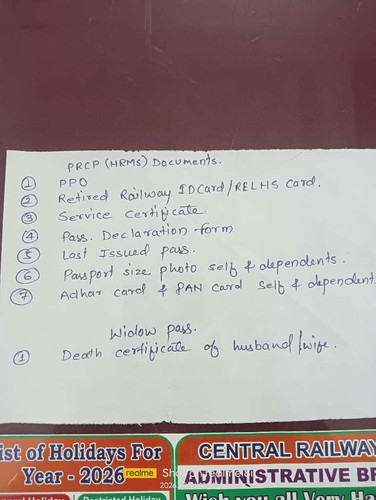 PRCP (HRMS) Documents.
① PPO
② Retired Railway IDCard/RELHS Card.
③ Service Certificate
④ Pass. Declaration form
⑤ Last Issued pass.
⑥ Passport size photo self & dependents.
⑦ Adhar card & PAN card self & dependent
Widow pass.
① Death certificate of husband/wife.
ist of Holidays For
Year - 2026
CENTRAL RAILWAY
ADMINISTRATIVE BR
realme
Restricted Holiday
Wish you all Very